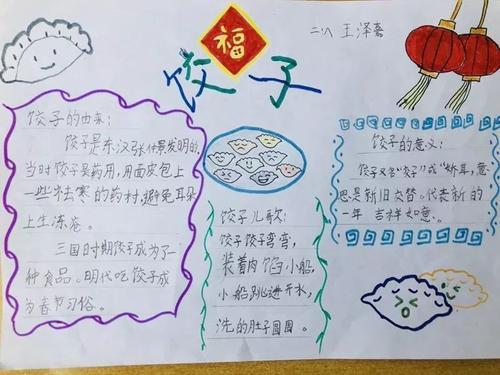 福
饺子
二八 王泽嘉
饺子的由来:
饺子是东汉张仲景发明的,
当时饺子是药用,用面皮包上
一些祛寒的药材,避免耳朵
上生冻疮。
三国时期饺子成为了一
种食品。明代吃饺子成
为春节习俗。
饺子儿歌:
饺子饺子弯弯,
装着肉馅小船,
小船跳进开水,
洗的肚子圆圆。
饺子的意义:
饺子又名"交子"或"娇耳,意
思是新旧交替。代表新的
一年 吉祥如意。